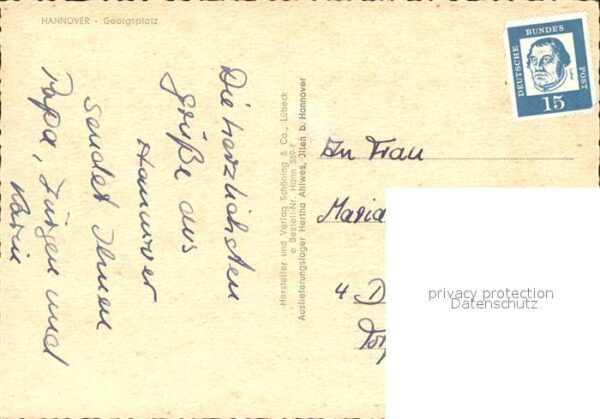 HANNOVER - Georgsplatz
Die herzlichsten
Grüße aus
Hannover
sendet Ihnen
Papa, Jürgen und
Karin
Hersteller und Verlag Schöning & Co., Lübeck
e Bestell-Nr. Hann 389-f
Auslieferungslager Hertha Ahlwes, Ilten b. Hannover
DEUTSCHE BUNDES POST
Luther
15
An Frau
Maria
4 D
privacy protection
Datenschutz